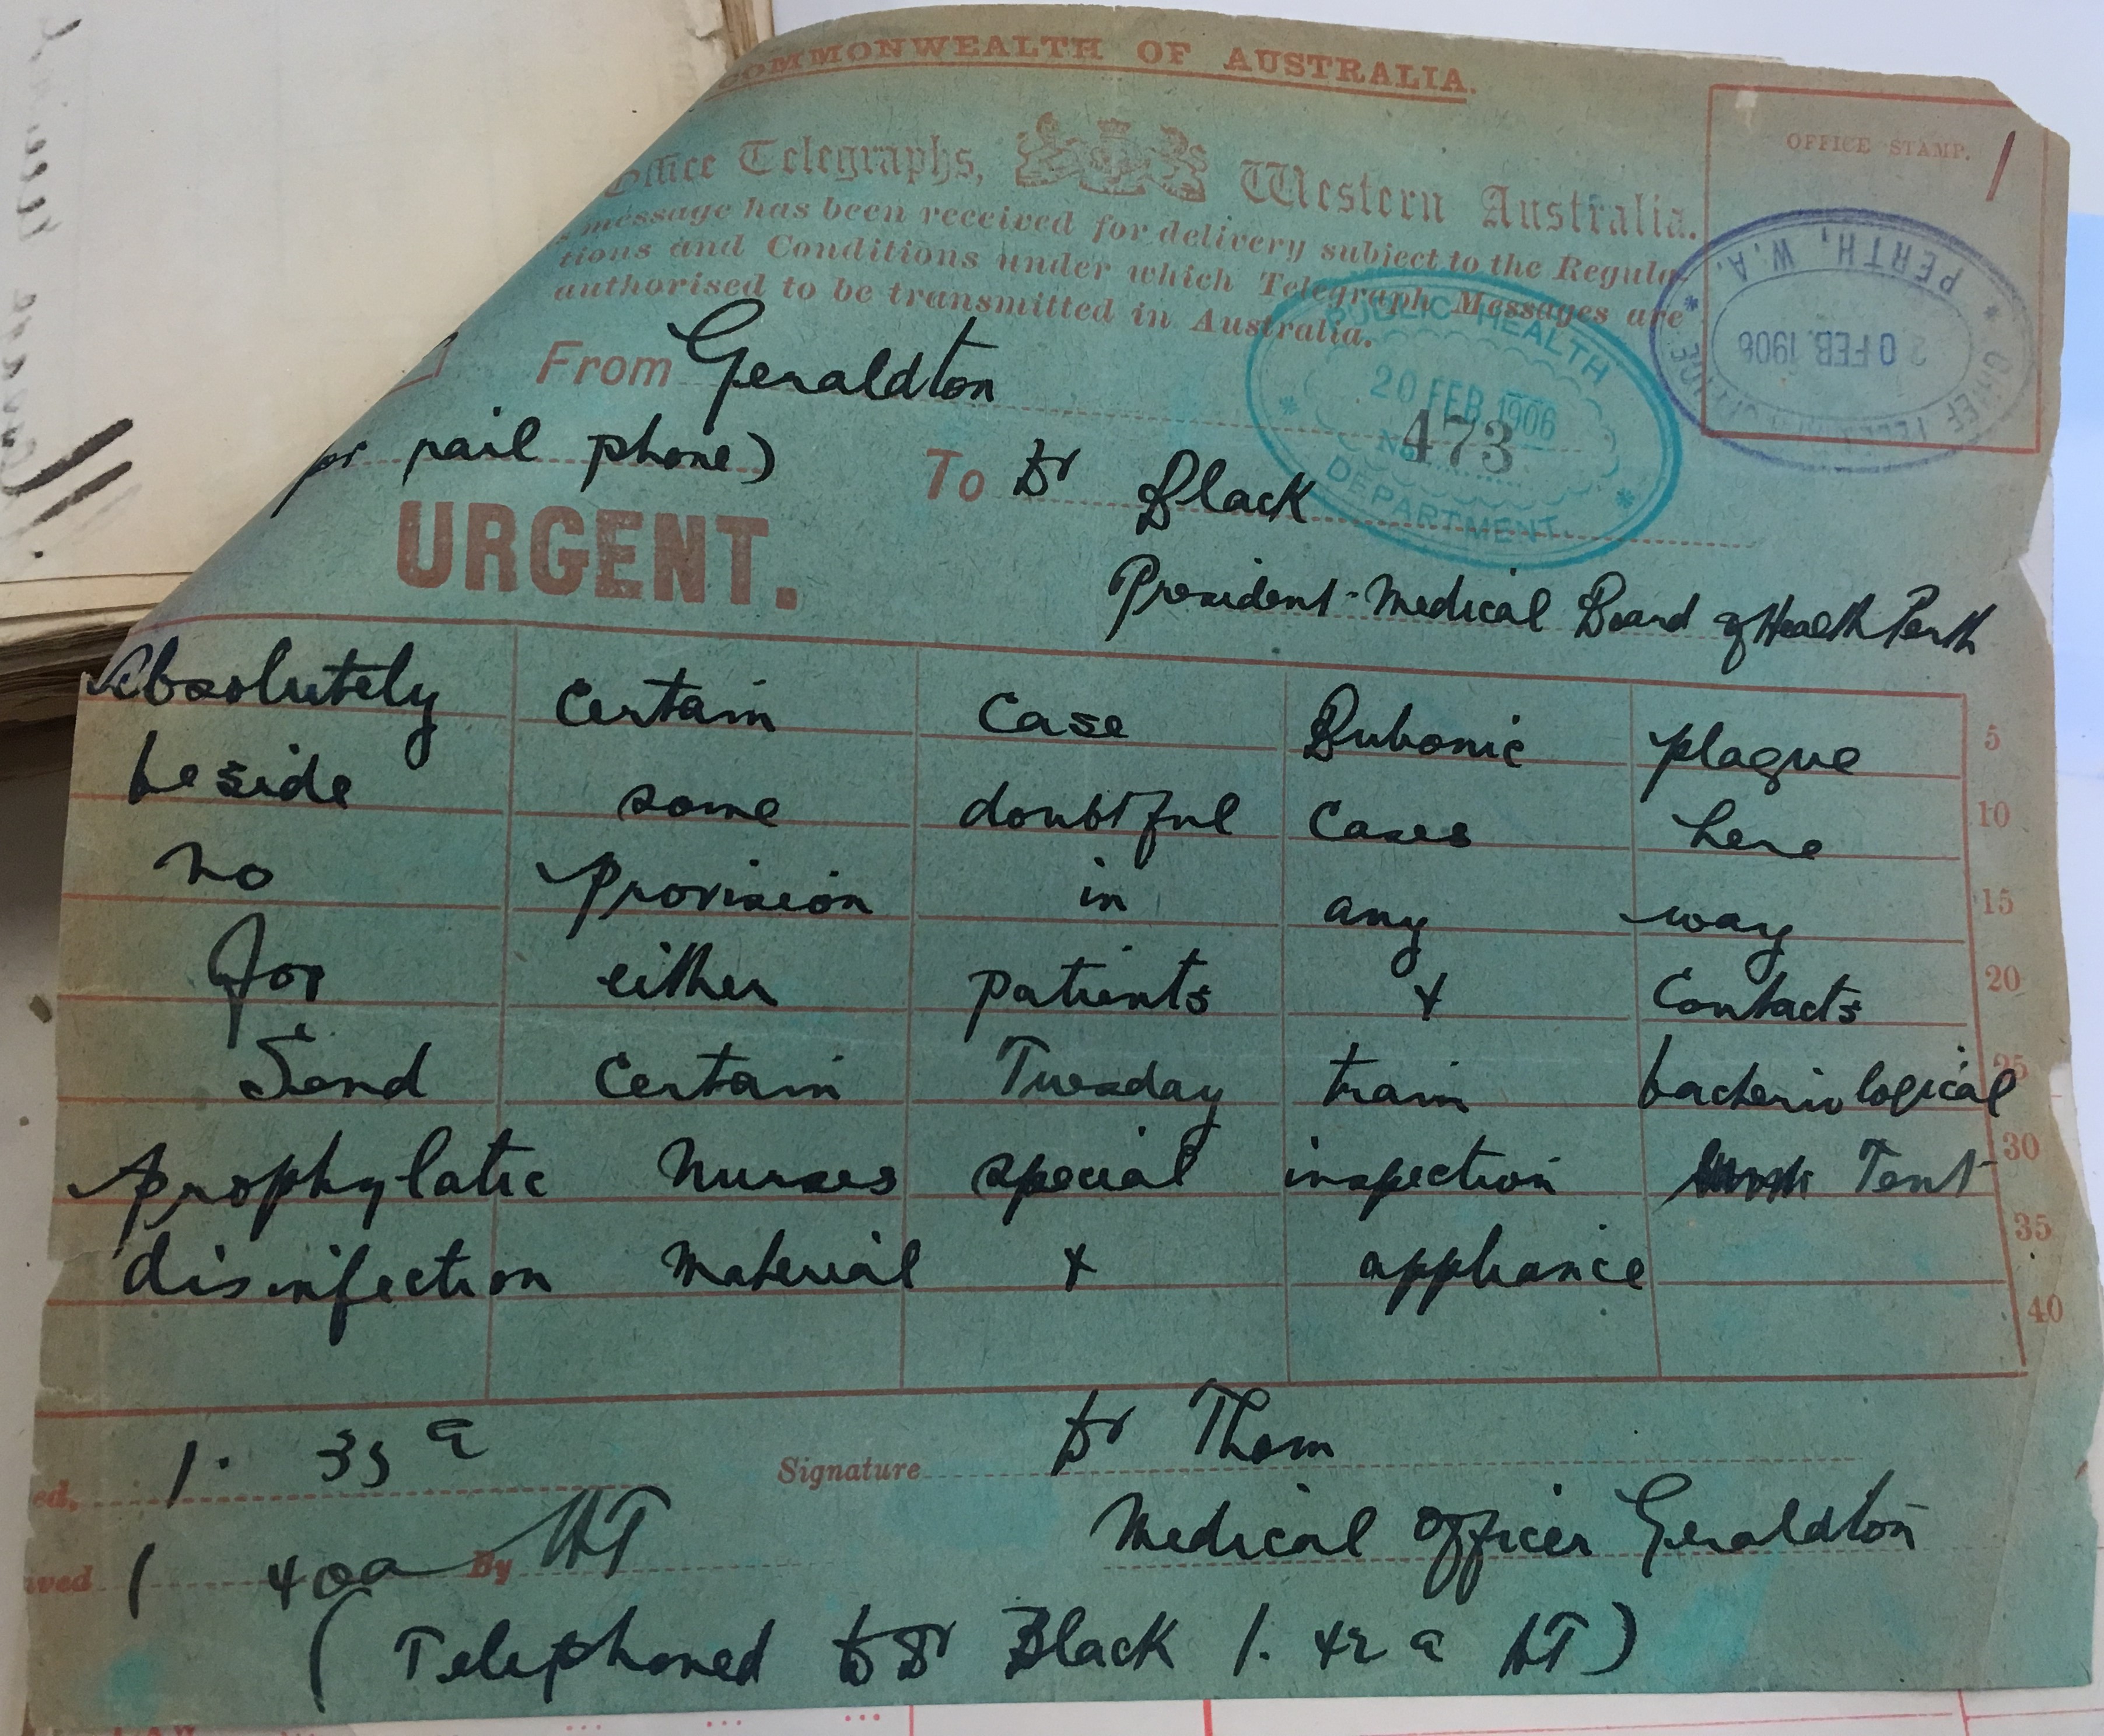 COMMONWEALTH OF AUSTRALIA.
Office Telegraphs, Western Australia.
OFFICE STAMP. 1
message has been received for delivery subject to the Regula-
tions and Conditions under which Telegraph Messages are
authorised to be transmitted in Australia.
PERTH, W.A.
20 FEB. 1906
PUBLIC HEALTH
20 FEB 1906
No. 473
DEPARTMENT.
From Geraldton
pr rail phone)
To Dr Black
URGENT.
President Medical Board of Health Perth
Absolutely Certain Case Bubonic plague 5
beside some doubtful Cases here 10
no provision in any way 15
for either patients & Contacts 20
Send Certain Tuesday train bacteriological 25
prophylatic nurses special inspection Tent 30
disinfection material & appliance 35
40
ed, 1. 35 a Signature Dr Thom
Medical Officer Geraldton
ived 1 40 a By HT
(Telephoned to Dr Black 1. 42 a HT)